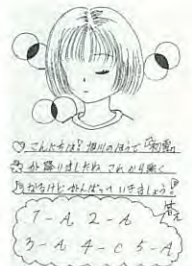 こんにちは! 旭川のほうで初雪
が降りましたね これから寒く
なるけど がんばっていきましょう!
答え
1-A 2-A
3-A 4-C 5-A